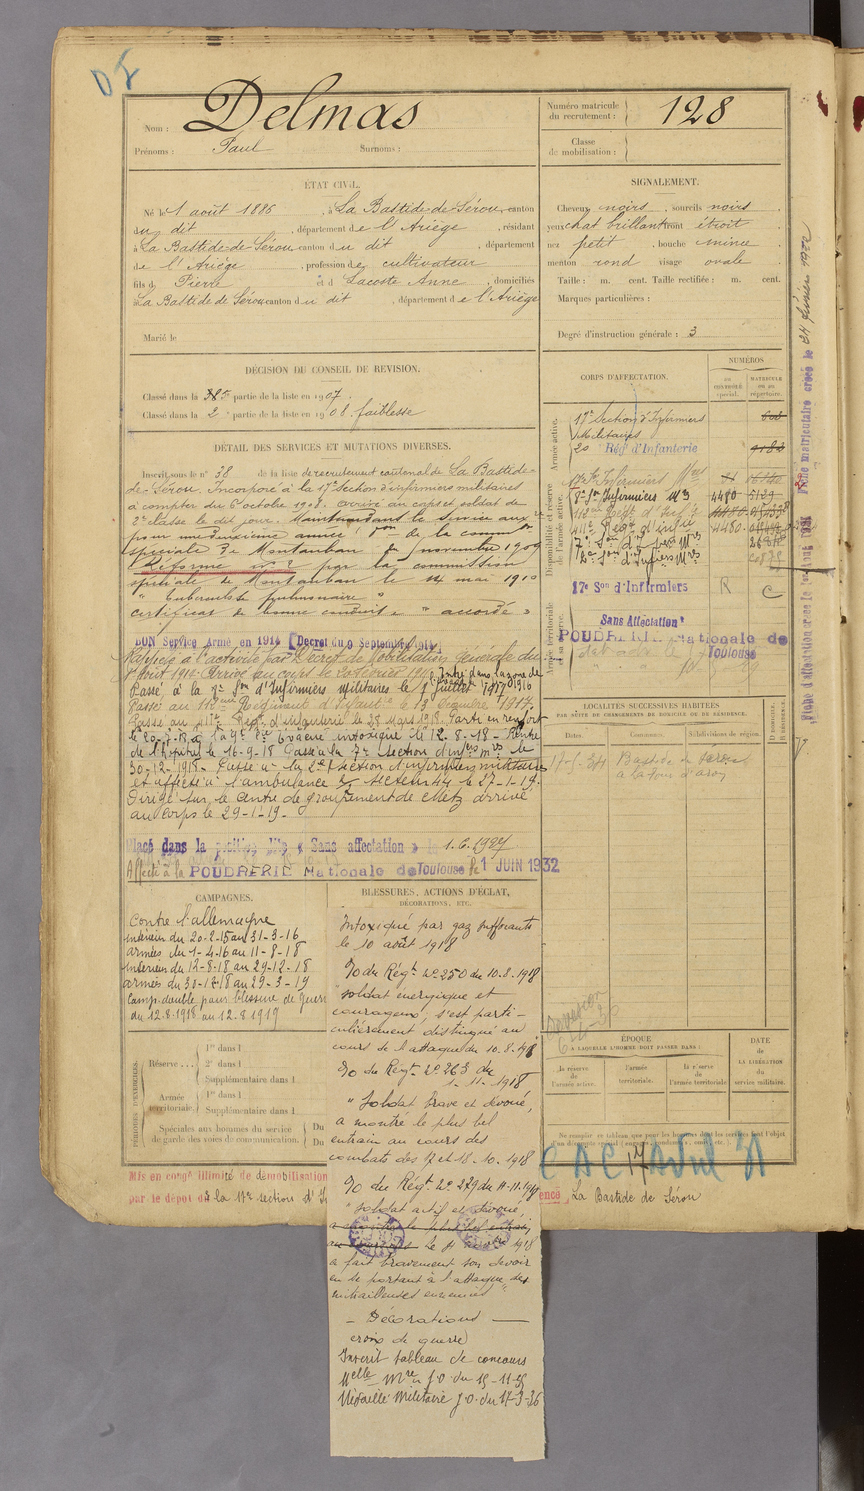 Nom : Delmas
Prénoms : Paul Surnoms :
Numéro matricule
du recrutement : 128
Classe
de mobilisation :
ÉTAT CIVIL.
Né le 1 août 1886, à La Bastide-de-Sérou, canton
du dit, département de l'Ariège, résidant
à La Bastide-de-Sérou canton du dit, département
de l'Ariège, profession de cultivateur
fils de Pierre et d Lacoste Anne, domiciliés
à La Bastide de Sérou canton du dit, département de l'Ariège
Marié le
SIGNALEMENT.
Cheveux noirs, sourcils noirs
yeux chat brillant front étroit
nez petit, bouche mince
menton rond visage ovale
Taille : m. cent. Taille rectifiée : m. cent.
Marques particulières :
Degré d'instruction générale : 3
DÉCISION DU CONSEIL DE REVISION.
Classé dans la partie de la liste en 1907.
Classé dans la 2e partie de la liste en 1908. faiblesse
DÉTAIL DES SERVICES ET MUTATIONS DIVERSES.
Inscrit sous le n° 38 de la liste de recrutement cantonal de La Bastide-
de-Sérou. Incorporé à la 17e section d'infirmiers militaires
à compter du 6 octobre 1908. arrivé au corps et soldat de
2e classe le dit jour. Maintenu dans le service aux.re
pour une deuxième année. de la comm.on
spéciale de Montauban du novembre 1909
Réformé n° 2 par la commission
spéciale de Montauban le 14 mai 1910
"tuberculose pulmonaire"
certificat de bonne conduite "accordé"
BON Service Armé en 1914 [Décret du 9 Septembre 1914]
Rappelé à l'activité par Décret de Mobilisation générale du
1er Août 1914. Arrivé au corps le 20 février 1915. Entré dans la zone des
Passé à la 7e Son d'Infirmiers Militaires le 1 juillet 1917
Passé au 112eme Régiment d'Infantie le 13 Décembre 1917
Passé au 411e Régt d'infanterie le 28 Mars 1918. Parti en renfort
le 20-7-18 Evacué intoxiqué le 12-8-18 - Rentré
de l'hôpital le 16-9-18 Passé à la 7e section d'infers mres le
30-12-1918. Passé à la 2e section d'infirmiers militaires
et affecté à l'ambulance le 27-1-19.
Dirigé sur le Centre de groupement de Metz arrivé
au corps le 29-1-19.
Placé dans la position dite « Sans affectation » le 1.6.1927
Affecté à la POUDRERIE Nationale de Toulouse le 1 JUIN 1932
CORPS D'AFFECTATION.
NUMÉROS
au contrôle spécial.
matricule ou au répertoire.
Armée active.
17e Section d'Infirmiers
Militaires
20 Régt d'Infanterie
Disponibilité et réserve de l'armée active.
17e Son Infirmiers Mres
8e Son Infirmiers Mres 4480 5129
112eme Regt d'Infie
411e Régt d'infie 4480
7e Son d'infiers Mres
2e Son d'Infiers Mres
Armée territoriale et sa réserve.
17e Son d'Infirmiers R C
Sans Affectation
POUDRERIE Nationale de
Toulouse
LOCALITÉS SUCCESSIVES HABITÉES
PAR SUITE DE CHANGEMENTS DE DOMICILE OU DE RÉSIDENCE.
Dates. Communes. Subdivisions de région. D domicile. R résidence.
Bastide de Sérou
CAMPAGNES.
Contre l'allemagne
intérieur du 20-2-15 au 31-3-16
armées du 1-4-16 au 11-8-18
intérieur du 12-8-18 au 29-12-18
armées du 30-12-18 au 29-3-19
Camp. double pour blessure de guerre
du 12.8.1918 au 12.8.1919
BLESSURES, ACTIONS D'ÉCLAT,
DÉCORATIONS, ETC.
Intoxiqué par gaz suffocants
le 10 août 1918
O du Régt n° 250 du 10.8.1918
"soldat énergique et
courageux, s'est parti-
culièrement distingué au
cours de l'attaque du 10.8.1918
O du Regt n° 263 du
1.11.1918
"Soldat brave et dévoué,
a montré le plus bel
entrain au cours des
combats des 17 et 18.10.1918
O du Régt n° 279 du 11-11-1918
"soldat actif et dévoué,
a montré le plus bel entrain,
au cours Le 4 1918
a fait bravement son devoir
en se portant à l'attaque des
mitrailleuses ennemies"
- Décorations -
croix de guerre
Inscrit tableau de concours
Melle Mre J.O. du 15-11-25
Médaille Militaire J.O. du 17-3-26
PÉRIODES D'EXERCICES.
Réserve... 1re dans l
2e dans l
Supplémentaire dans l
Armée territoriale. 1re dans l
Supplémentaire dans l
Spéciales aux hommes du service
de garde des voies de communication. Du
Du
ÉPOQUE
À LAQUELLE L'HOMME DOIT PASSER DANS :
la réserve de l'armée active.
l'armée territoriale.
la réserve de l'armée territoriale
DATE
de
LA LIBÉRATION
du
service militaire.
CAC 17 Avril 31
Mis en congé illimité de démobilisation
par le dépôt de la 17e section d'I
La Bastide de Sérou
Fiche matriculaire créée le 24 février 1922